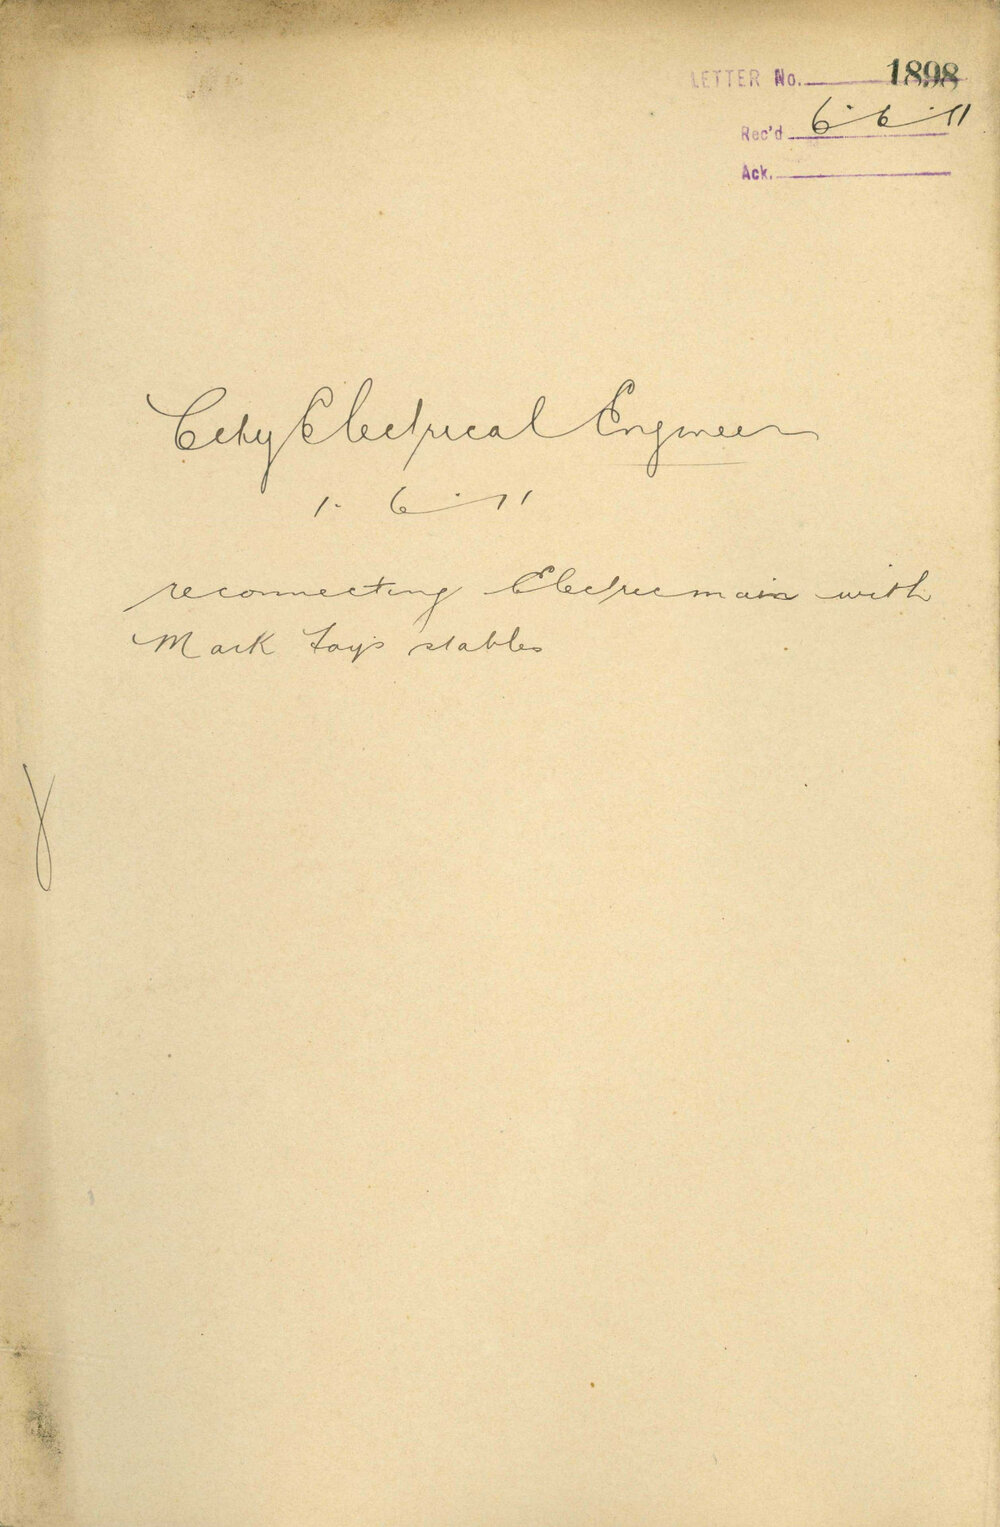 LETTER No. 1898
Rec'd 6. 6. 11
Ack.
City Electrical Engineer
1. 6. 11
reconnecting Electric main with
Mark Foys stables